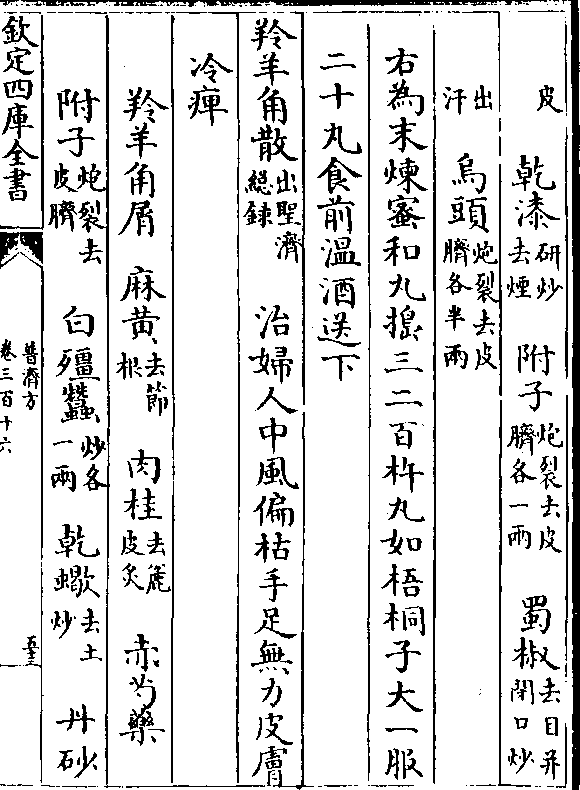 皮　乾漆研炒去煙　附子炮裂去皮臍各一兩　蜀椒去目并閉口炒
出汗　烏頭炮裂去皮臍各半兩
右為末煉蜜和丸搗三二百杵丸如梧桐子大一服
二十丸食前溫酒送下
羚羊角散出聖濟總錄　治婦人中風偏枯手足無力皮膚
冷痺
羚羊角屑　麻黃去節根　肉桂去麄皮炙　赤芍藥
附子炮裂去皮臍　白殭蠶炒各一兩　乾蠍去土炒　丹砂
欽定四庫全書
普濟方
卷三百十六